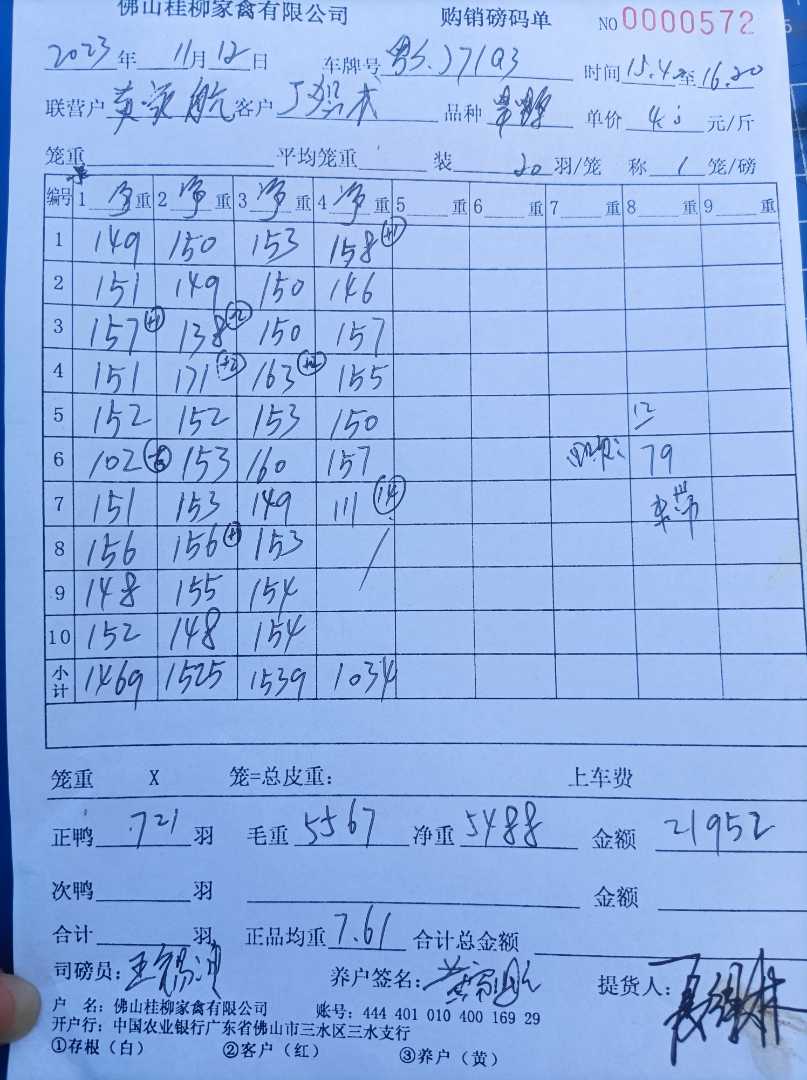 佛山桂柳家禽有限公司 购销磅码单 NO 0000572
2023年 11月12日 车牌号 时间15.4 至16.20
联营户 客户 品种 单价 元/斤
笼重 平均笼重 装 20 羽/笼 称 1 笼/磅
编号 1 净重 2 净重 3 净重 4 净重 5 重 6 重 7 重 8 重 9 重
1 149 150 153 158 +1
2 151 149 150 146
3 157 +1 138 -2 150 157
4 151 171 +2 163 155
5 152 152 153 150 12
6 102 153 160 157 79
7 151 153 149 111 14
8 156 156 +1 153 /
9 148 155 154
10 152 148 154
小计 1469 1525 1539 1034
笼重 X 笼=总皮重: 上车费
正鸭 721 羽 毛重 5567 净重 5488 金额 21952
次鸭 羽 金额
合计 羽 正品均重 7.61 合计总金额
司磅员: 养户签名: 提货人:
户 名: 佛山桂柳家禽有限公司 账号: 444 401 010 400 169 29
开户行: 中国农业银行广东省佛山市三水区三水支行
①存根(白) ②客户(红) ③养户(黄)